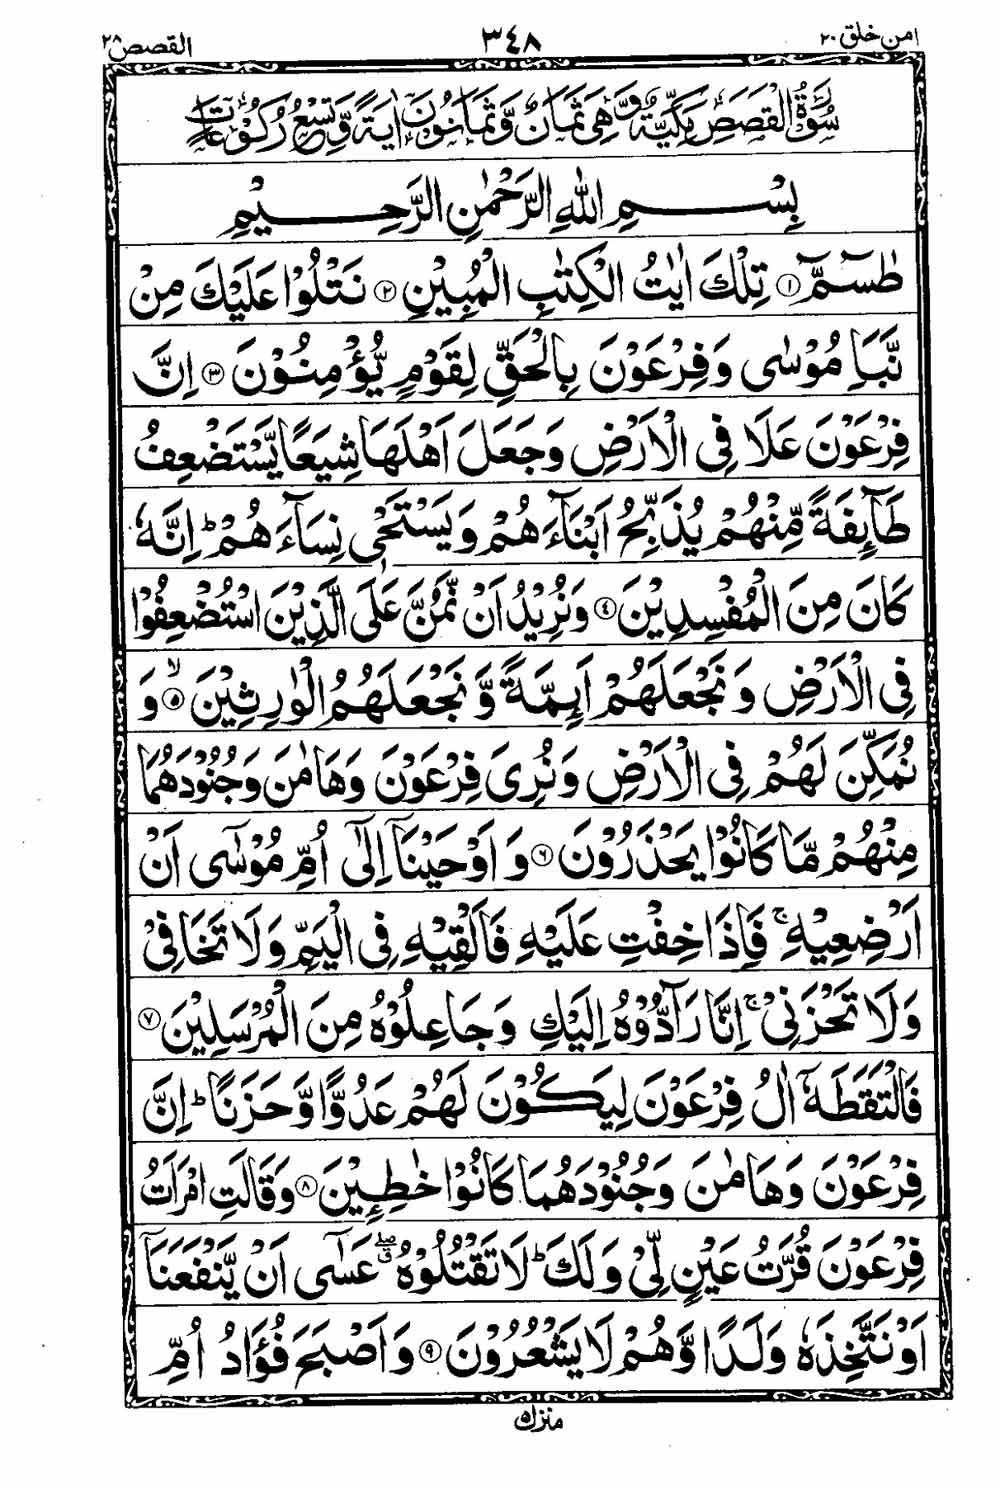 امن خلق ٢٠
٣٤٨
القصص ٢٨
سُوْرَةُ الْقَصَصِ مَكِّيَّةٌ وَّهِىَ ثَمَانٌ وَّثَمَانُوْنَ اٰيَةً وَّتِسْعُ رُكُوْعَاتٍ
بِسْمِ اللّٰهِ الرَّحْمٰنِ الرَّحِيْمِ
طٰسٓمّٓ ۝١ تِلْكَ اٰيٰتُ الْكِتٰبِ الْمُبِيْنِ ۝٢ نَتْلُوْا عَلَيْكَ مِنْ
نَّبَاِ مُوْسٰى وَفِرْعَوْنَ بِالْحَقِّ لِقَوْمٍ يُّؤْمِنُوْنَ ۝٣ اِنَّ
فِرْعَوْنَ عَلَا فِى الْاَرْضِ وَجَعَلَ اَهْلَهَا شِيَعًا يَّسْتَضْعِفُ
طَآئِفَةً مِّنْهُمْ يُذَبِّحُ اَبْنَآءَهُمْ وَيَسْتَحْىٖ نِسَآءَهُمْ ؕ اِنَّهٗ
كَانَ مِنَ الْمُفْسِدِيْنَ ۝٤ وَنُرِيْدُ اَنْ نَّمُنَّ عَلَى الَّذِيْنَ اسْتُضْعِفُوْا
فِى الْاَرْضِ وَنَجْعَلَهُمْ اَئِمَّةً وَّنَجْعَلَهُمُ الْوٰرِثِيْنَ ۝٥ۙ وَ
نُمَكِّنَ لَهُمْ فِى الْاَرْضِ وَنُرِىَ فِرْعَوْنَ وَهَامٰنَ وَجُنُوْدَهُمَا
مِنْهُمْ مَّا كَانُوْا يَحْذَرُوْنَ ۝٦ وَاَوْحَيْنَآ اِلٰٓى اُمِّ مُوْسٰٓى اَنْ
اَرْضِعِيْهِ ۚ فَاِذَا خِفْتِ عَلَيْهِ فَاَلْقِيْهِ فِى الْيَمِّ وَلَا تَخَافِىْ
وَلَا تَحْزَنِىْ ۚ اِنَّا رَآدُّوْهُ اِلَيْكِ وَجَاعِلُوْهُ مِنَ الْمُرْسَلِيْنَ ۝٧
فَالْتَقَطَهٗٓ اٰلُ فِرْعَوْنَ لِيَكُوْنَ لَهُمْ عَدُوًّا وَّحَزَنًا ؕ اِنَّ
فِرْعَوْنَ وَهَامٰنَ وَجُنُوْدَهُمَا كَانُوْا خٰطِـِٕيْنَ ۝٨ وَقَالَتِ امْرَاَتُ
فِرْعَوْنَ قُرَّتُ عَيْنٍ لِّىْ وَلَكَ ؕ لَا تَقْتُلُوْهُ ۖق عَسٰٓى اَنْ يَّنْفَعَنَآ
اَوْ نَتَّخِذَهٗ وَلَدًا وَّهُمْ لَا يَشْعُرُوْنَ ۝٩ وَاَصْبَحَ فُؤَادُ اُمِّ
منزل ٥